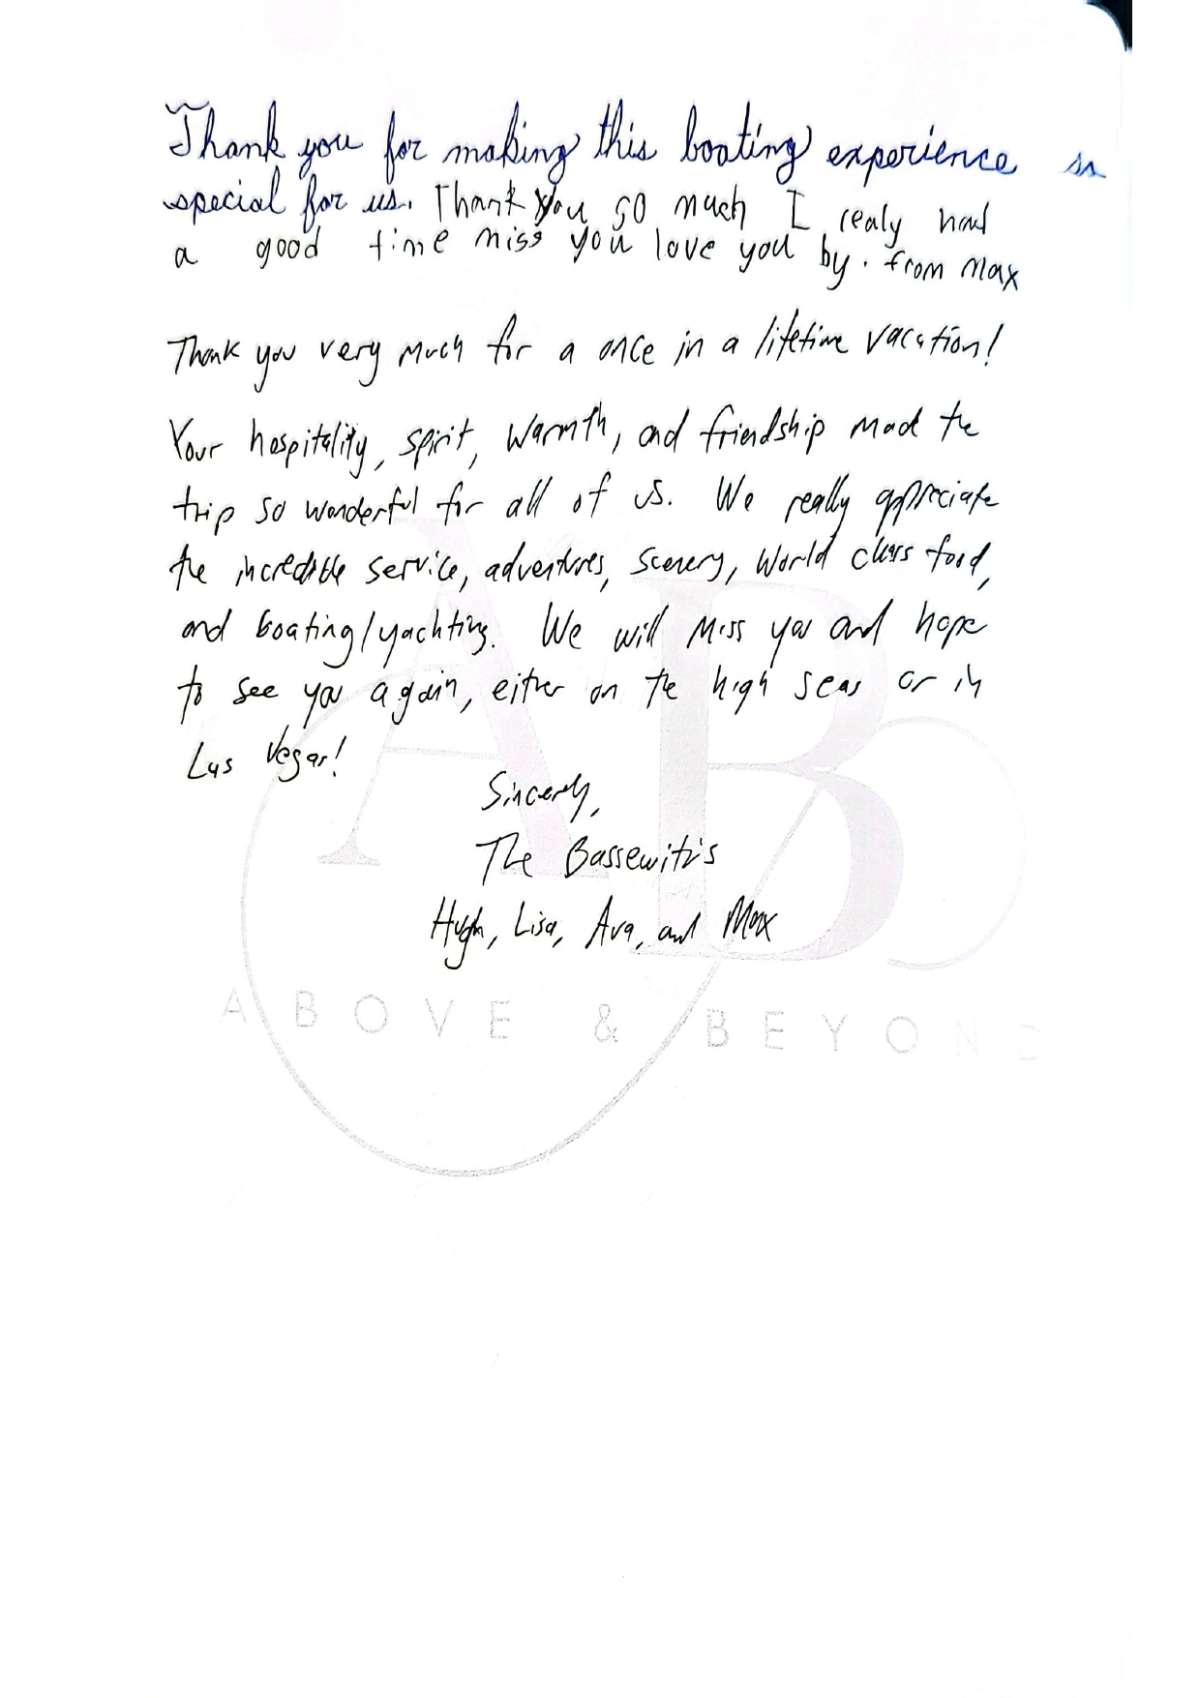 Thank you for making this boating experience so
special for us. Thank you so much I realy had
a good time miss you love you by. from max
Thank you very much for a once in a lifetime vacation!
Your hospitality, spirit, warmth, and friendship mad the
trip so wonderful for all of us. We really appreciate
the incredible service, adventures, scenery, world class food,
and boating/yachting. We will miss you and hope
to see you again, either on the high seas or in
Las Vegas!
Sincerely,
The Bassewitz's
Hugh, Lisa, Ava, and Max
AB
ABOVE & BEYOND